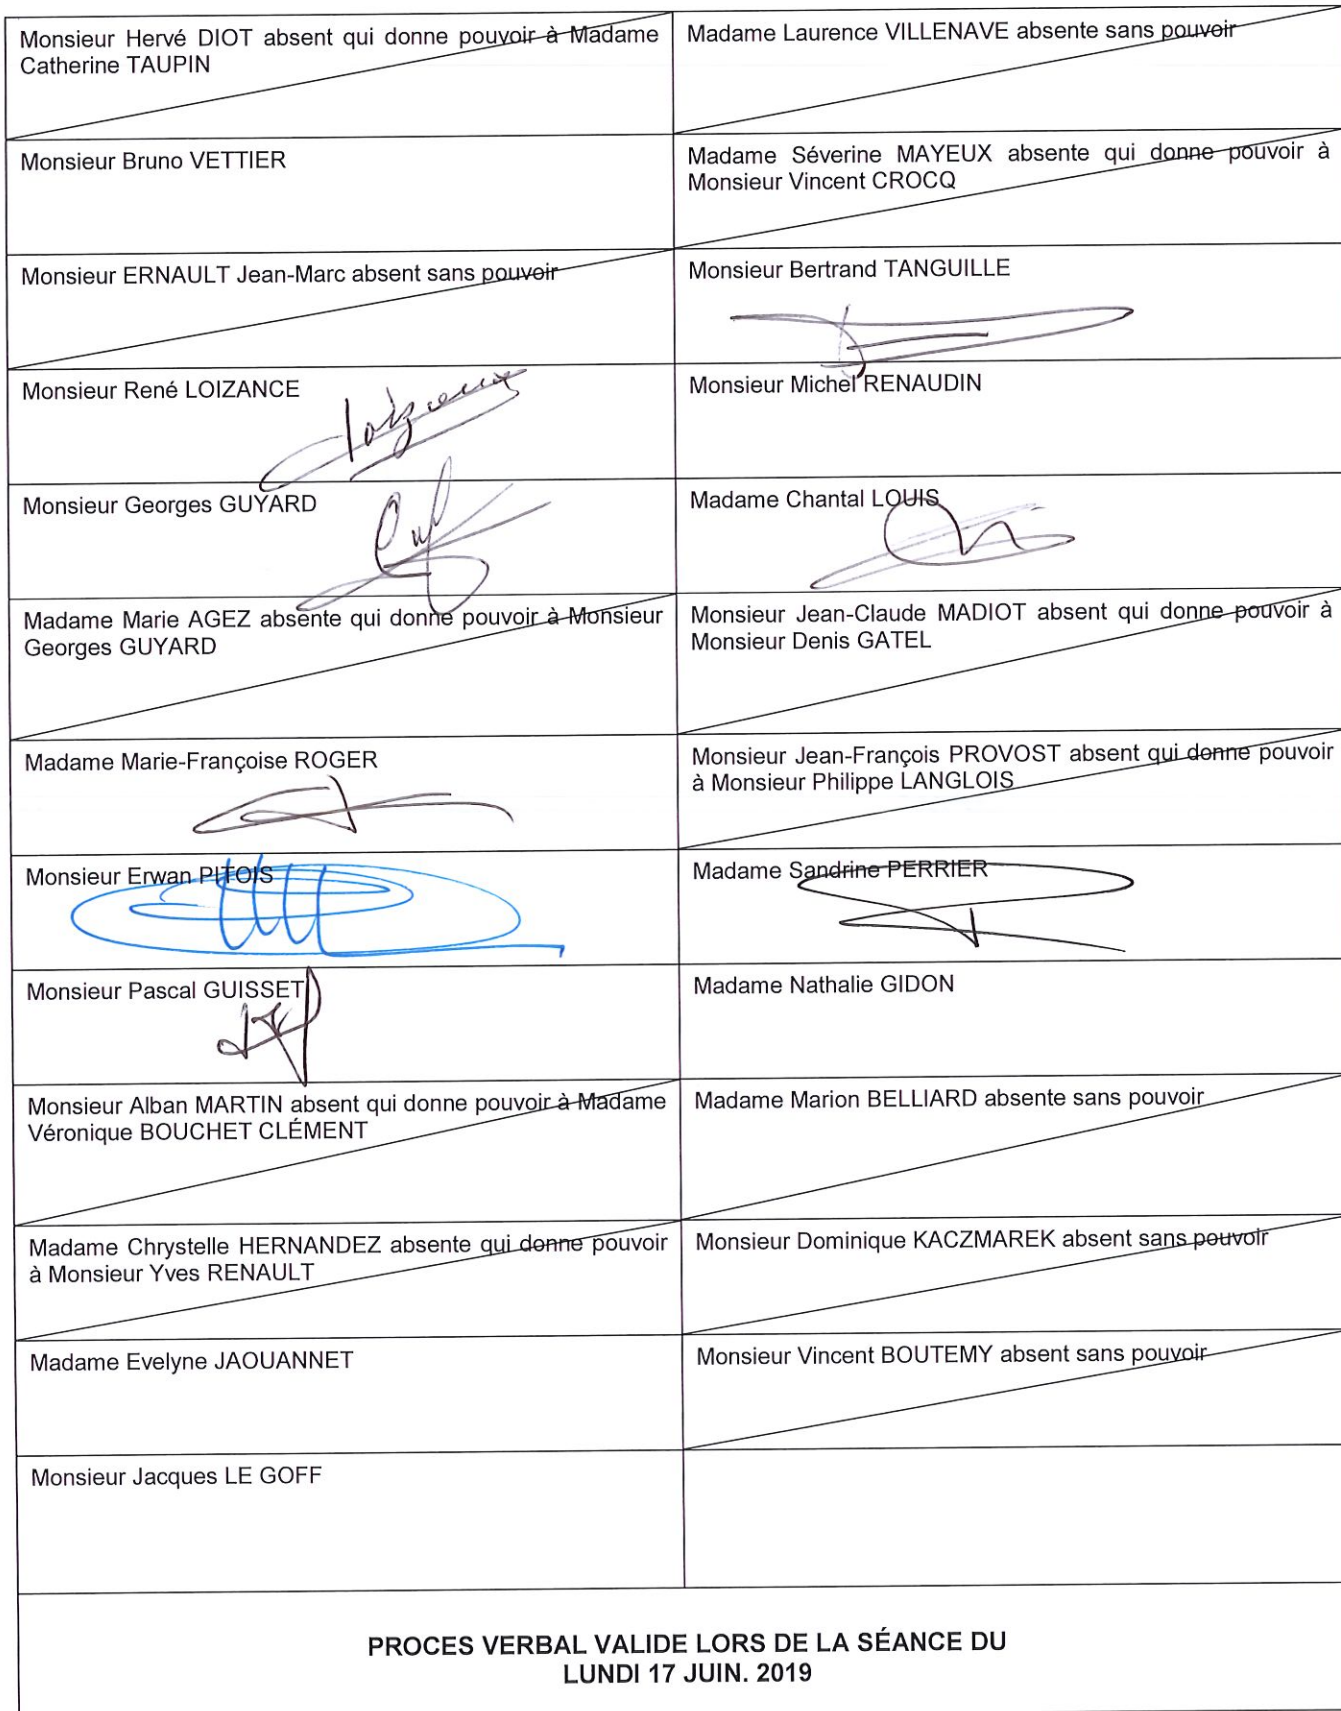 Monsieur Hervé DIOT absent qui donne pouvoir à Madame
Catherine TAUPIN
Madame Laurence VILLENAVE absente sans pouvoir
Monsieur Bruno VETTIER
Madame Séverine MAYEUX absente qui donne pouvoir à
Monsieur Vincent CROCQ
Monsieur ERNAULT Jean-Marc absent sans pouvoir
Monsieur Bertrand TANGUILLE
Monsieur René LOIZANCE
Monsieur Michel RENAUDIN
Monsieur Georges GUYARD
Madame Chantal LOUIS
Madame Marie AGEZ absente qui donne pouvoir à Monsieur
Georges GUYARD
Monsieur Jean-Claude MADIOT absent qui donne pouvoir à
Monsieur Denis GATEL
Madame Marie-Françoise ROGER
Monsieur Jean-François PROVOST absent qui donne pouvoir
à Monsieur Philippe LANGLOIS
Monsieur Erwan PITOIS
Madame Sandrine PERRIER
Monsieur Pascal GUISSET
Madame Nathalie GIDON
Monsieur Alban MARTIN absent qui donne pouvoir à Madame
Véronique BOUCHET CLÉMENT
Madame Marion BELLIARD absente sans pouvoir
Madame Chrystelle HERNANDEZ absente qui donne pouvoir
à Monsieur Yves RENAULT
Monsieur Dominique KACZMAREK absent sans pouvoir
Madame Evelyne JAOUANNET
Monsieur Vincent BOUTEMY absent sans pouvoir
Monsieur Jacques LE GOFF
PROCES VERBAL VALIDE LORS DE LA SÉANCE DU
LUNDI 17 JUIN. 2019